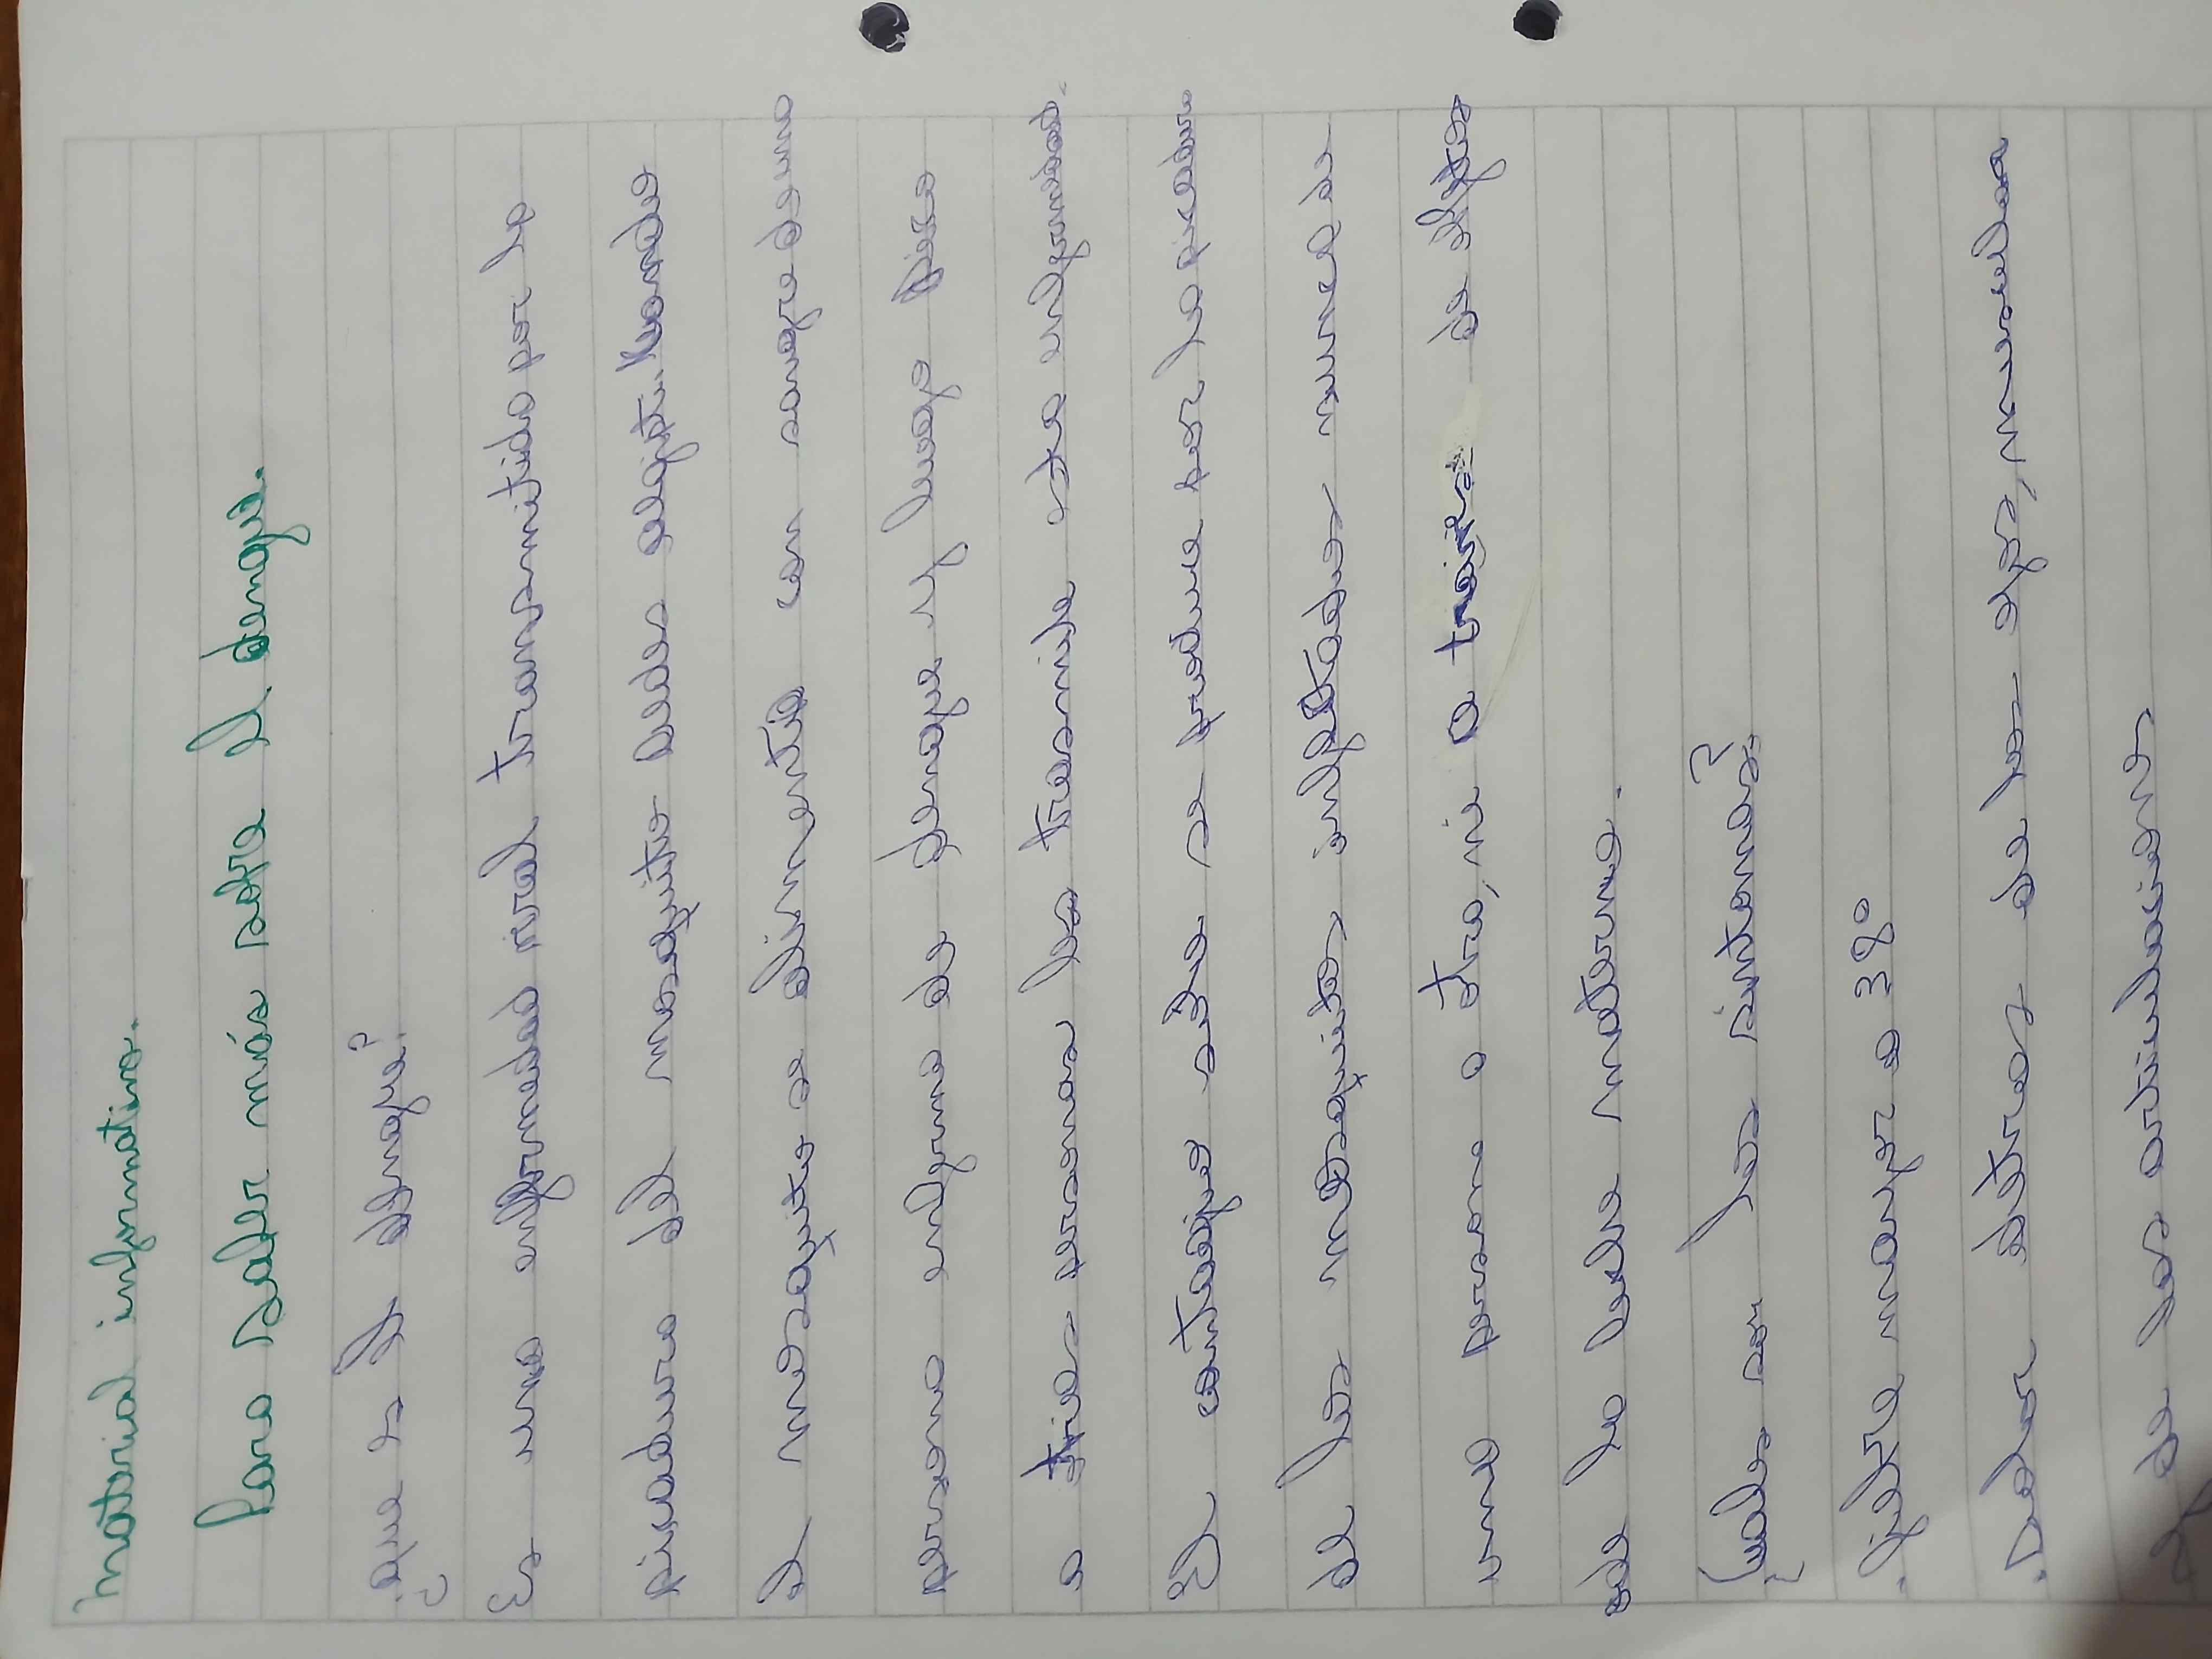 Material informativo.
Para saber más sobre el dengue.
¿que es el dengue?
Es una enfermedad viral transmitida por la
picadura del mosquito aedes aegipti. Cuando
el mosquito se alimenta con sangre de una
persona enferma de dengue y luego pica
a otras personas les trasmite esta enfermedad.
El contagio solo se produce por la picadura
de los mosquitos infectados nunca de
una persona a otra, ni a través de objetos
o de la leche materna.
¿Cuales son los síntomas?
.fiebre mayor a 38°
.Dolor detras de los ojos, musculares
de las articulaciones